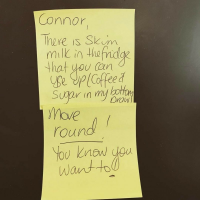 Connor,
There is Skim
milk in the fridge
that you can
use up (Coffee &
Sugar in my bottom
Drawer
Move
round!
You know you
want to!